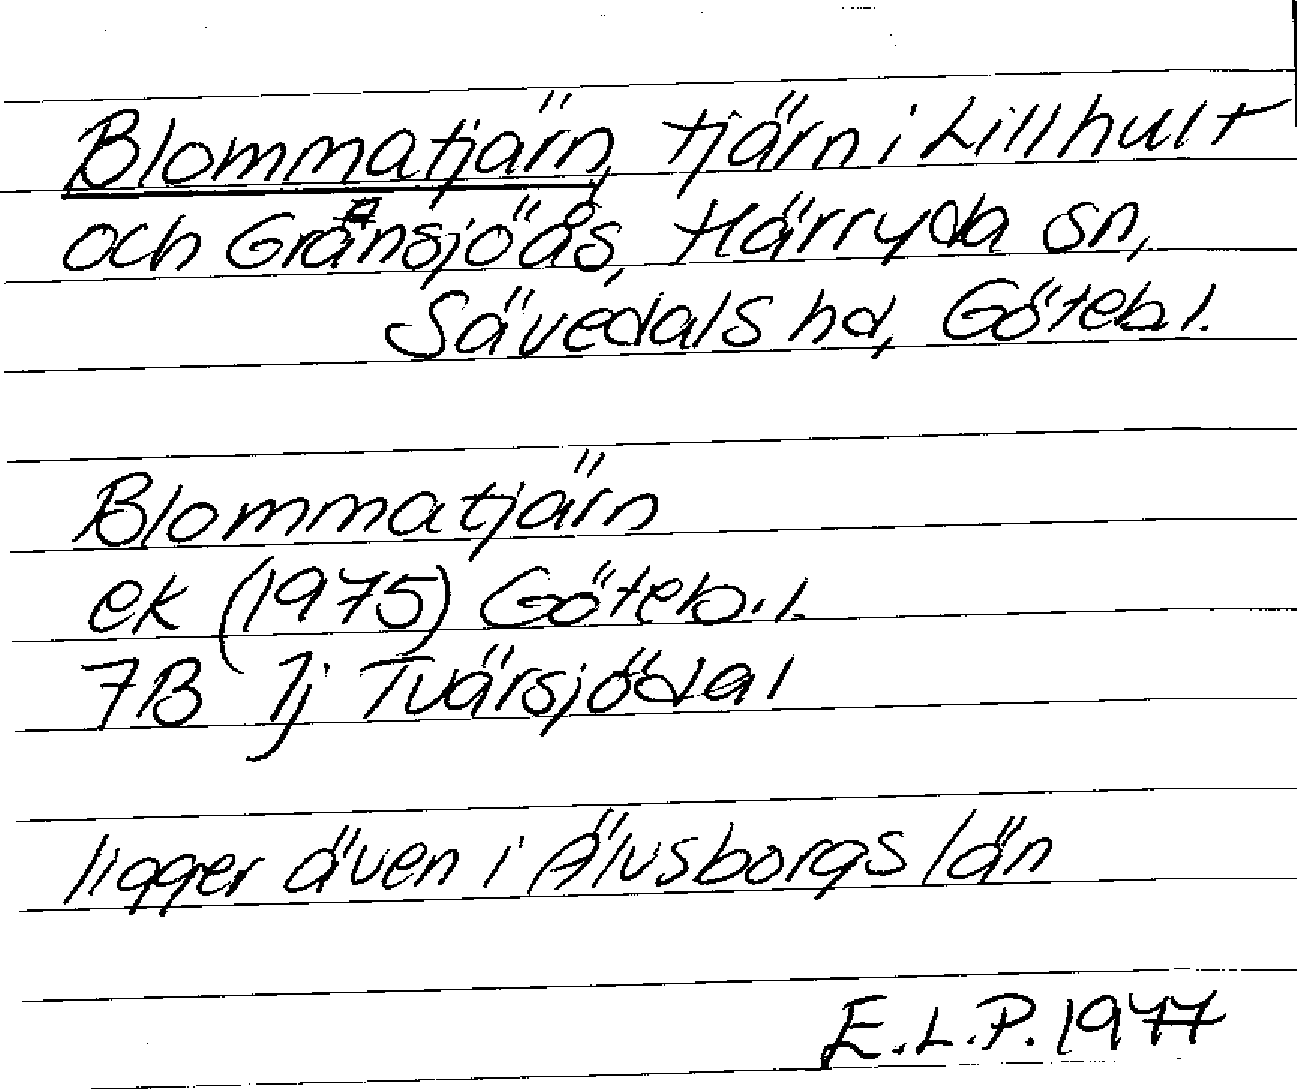 Blommatjärn, tjärn i Lillhult
och Gransjöås, Härryda sn,
Sävedals hd, Göteb. l.
Blommatjärn
ek (1975) Göteb. l.
7B 1j Tvärsjödal
ligger även i Älvsborgs län
E.L.P. 1977